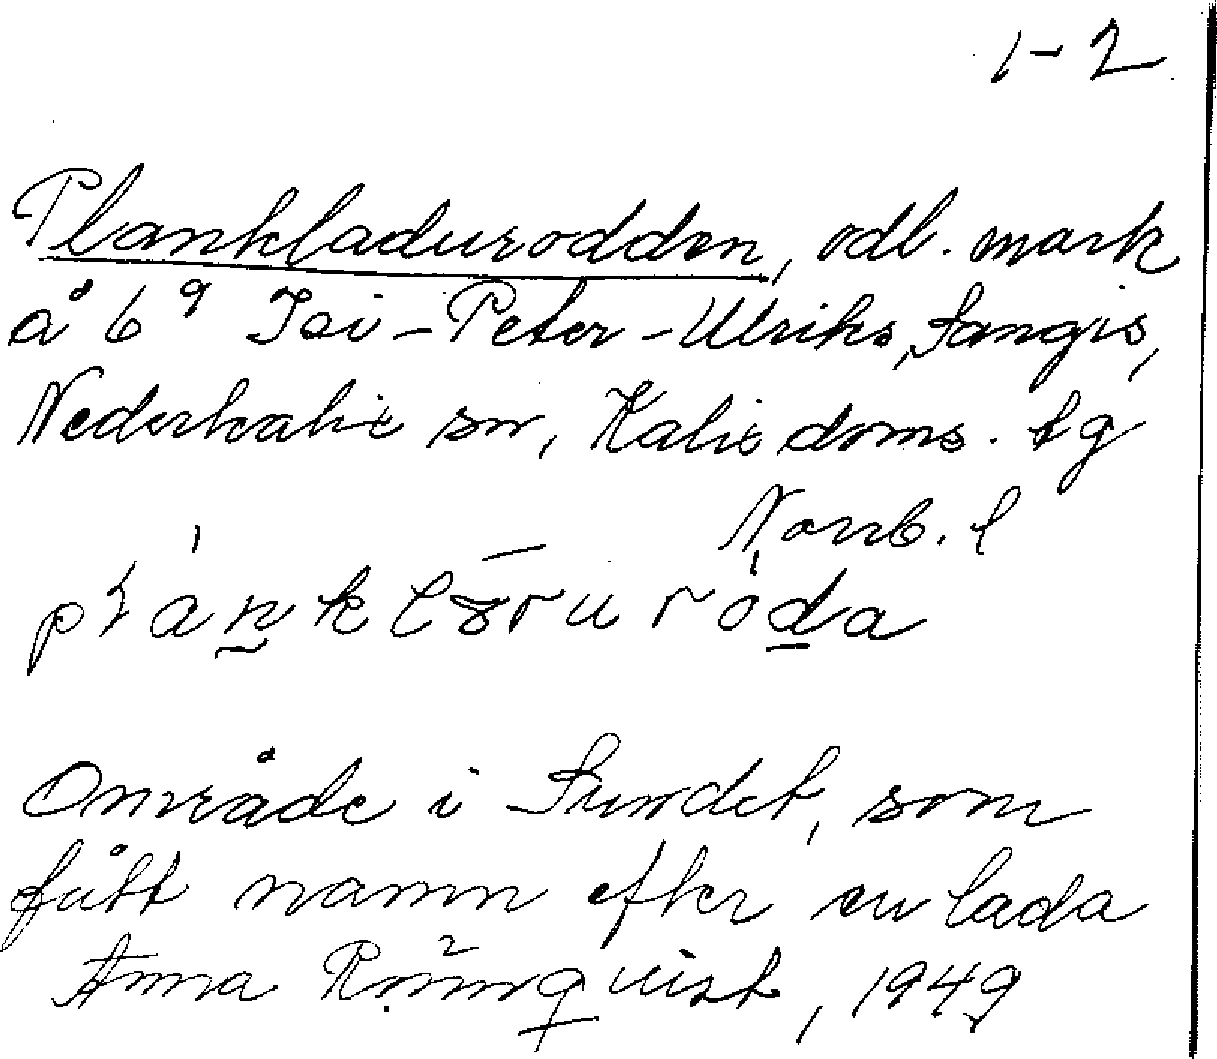 1-2
Plankladurodden, odl. mark
å 6⁹ Isi-Peter-Ulriks, Sangis,
Nederkalix sn, Kalix doms. tg
Norrb. l
Område i Sundet, som
fått namn efter en lada
Anna Rönnqvist, 1949